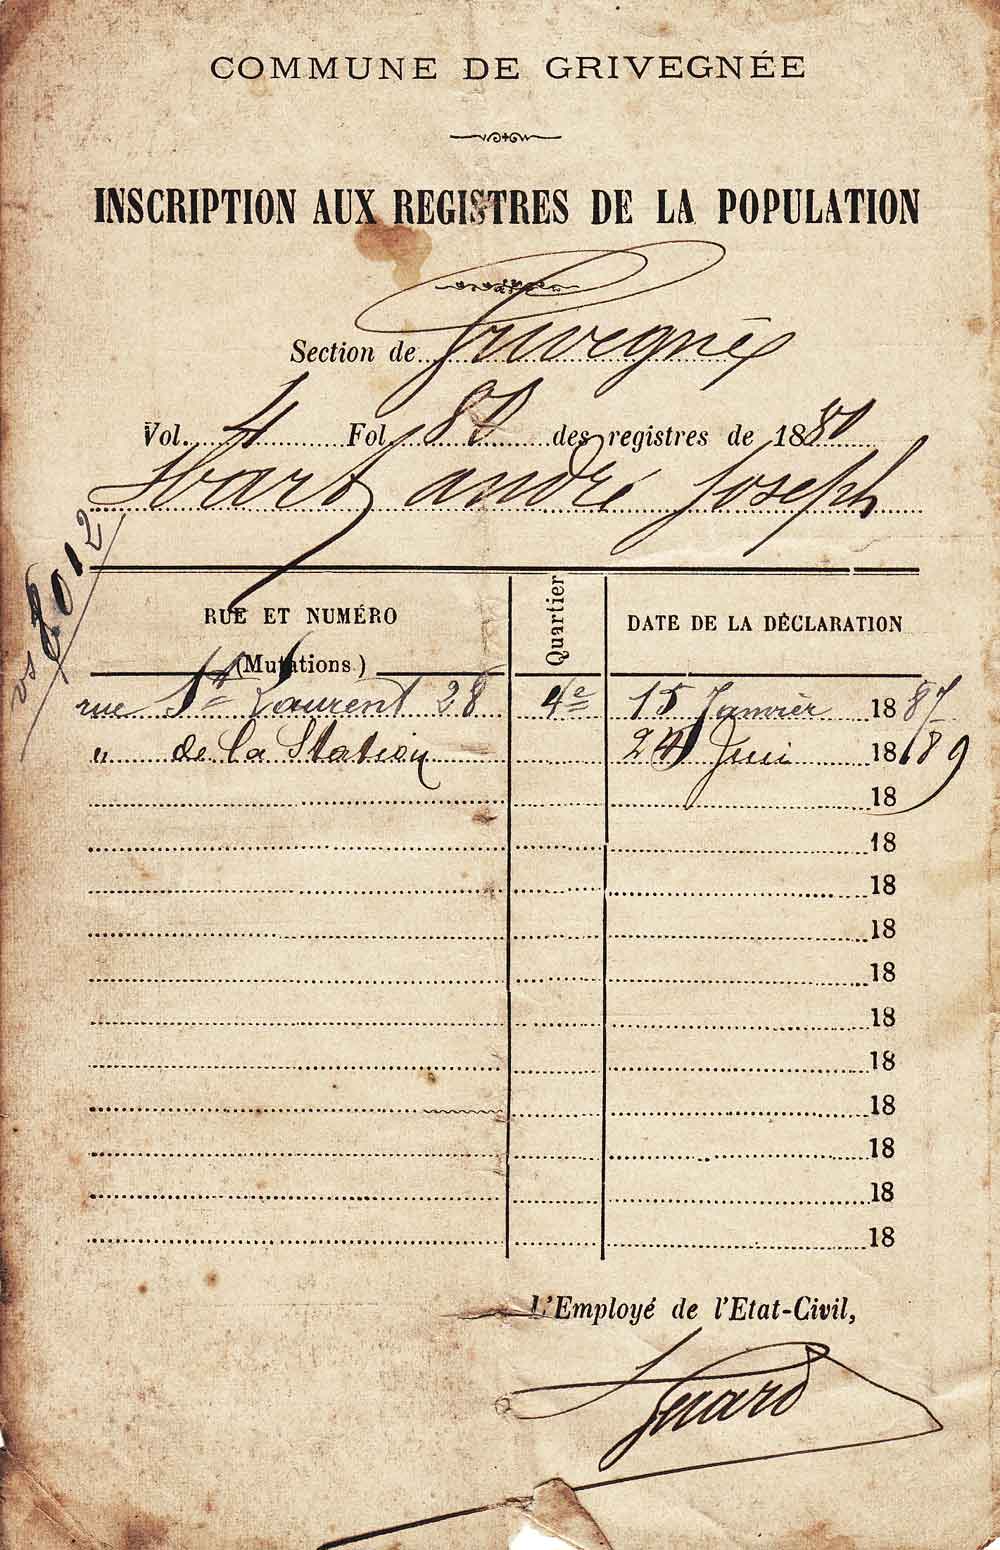 COMMUNE DE GRIVEGNÉE
INSCRIPTION AUX REGISTRES DE LA POPULATION
Section de Grivegnée
Vol. 4 Fol. des registres de 1880
andré Joseph
RUE ET NUMÉRO
(Mutations)
Quartier
DATE DE LA DÉCLARATION
vs 8012
rue St Laurent 28 4e 15 Janvier 1887
" de la Station 24 Juin 1889
18
18
18
18
18
18
18
18
18
18
18
L'Employé de l'Etat-Civil,